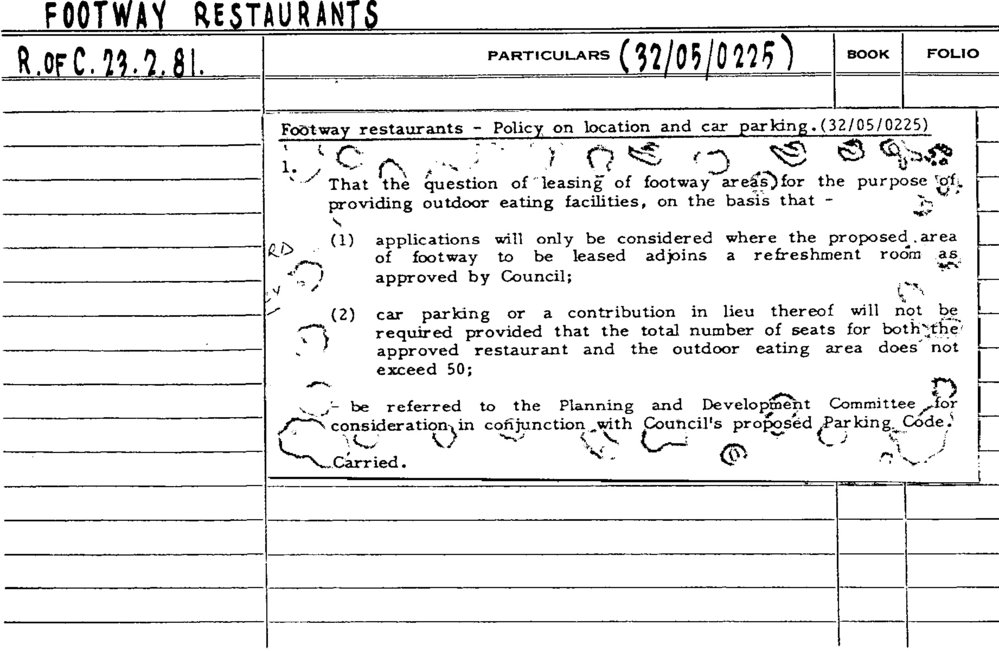 FOOTWAY RESTAURANTS
R. OF C. 23.2.81.
PARTICULARS (32/05/0225)
BOOK
FOLIO
Footway restaurants - Policy on location and car parking.(32/05/0225)
1.
That the question of leasing of footway areas for the purpose of
providing outdoor eating facilities, on the basis that -
(1) applications will only be considered where the proposed area
of footway to be leased adjoins a refreshment room as
approved by Council;
(2) car parking or a contribution in lieu thereof will not be
required provided that the total number of seats for both the
approved restaurant and the outdoor eating area does not
exceed 50;
- be referred to the Planning and Development Committee for
consideration in conjunction with Council's proposed Parking Code.
Carried.